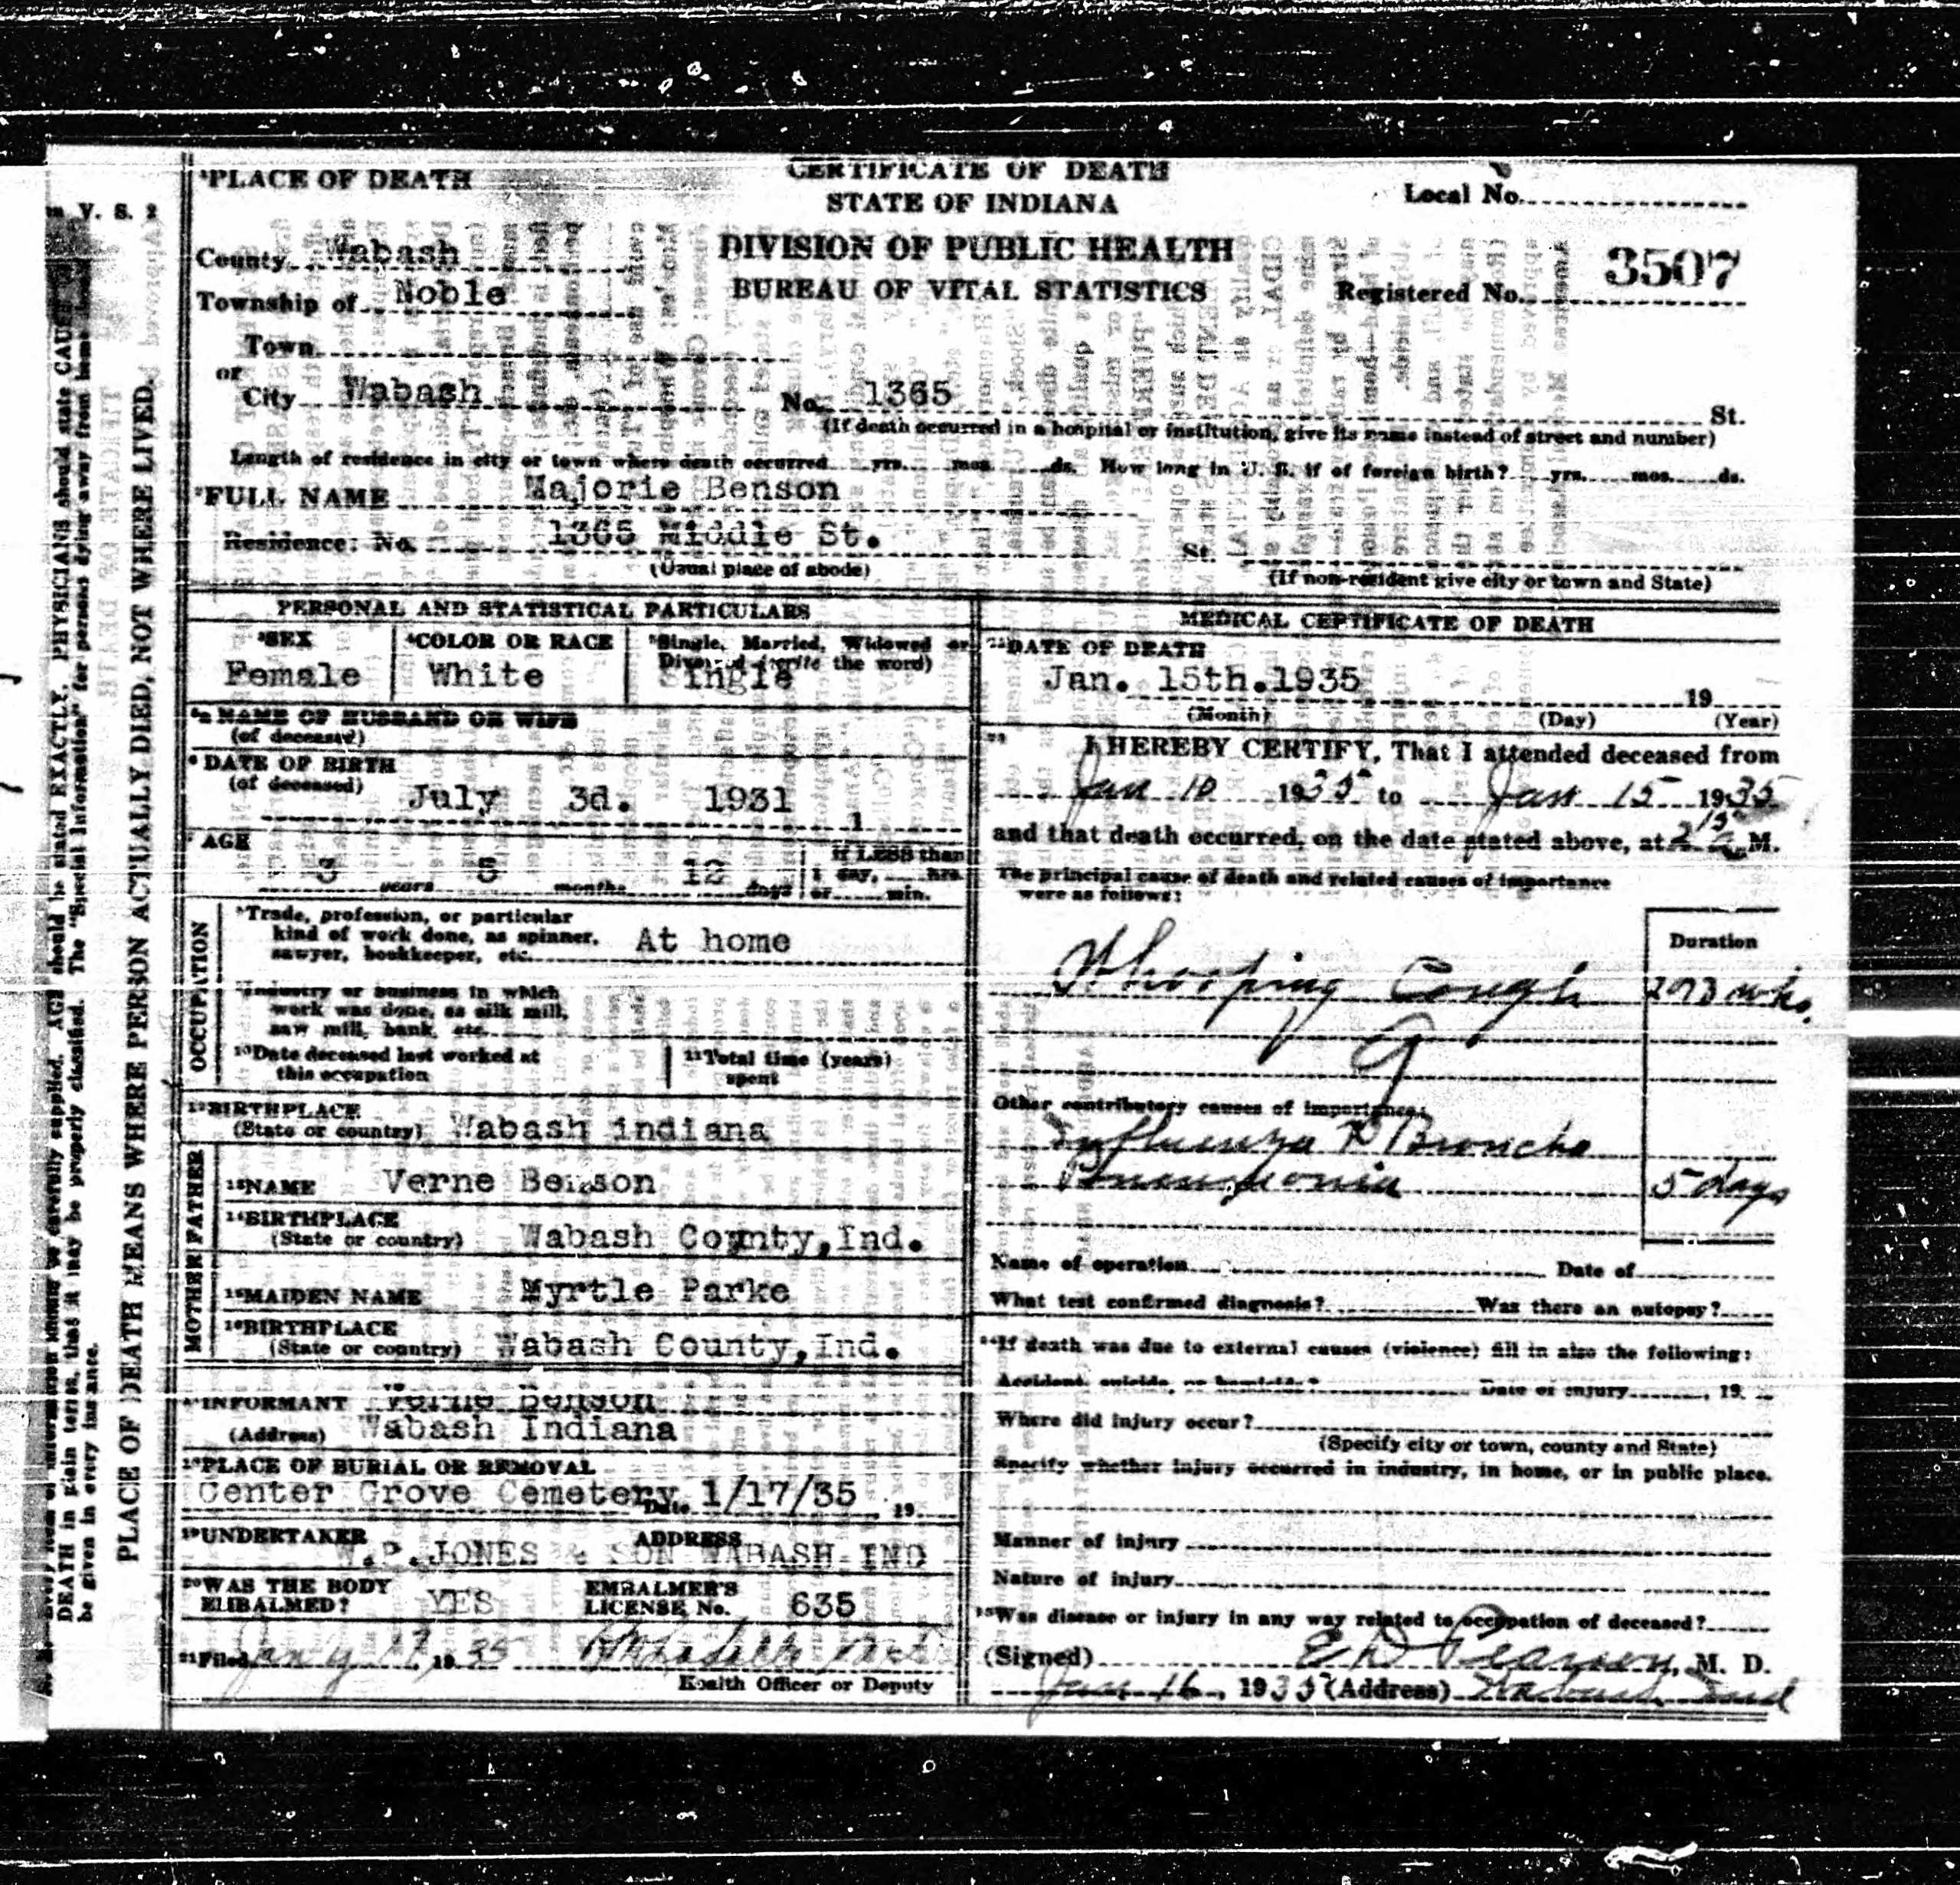 CERTIFICATE OF DEATH
STATE OF INDIANA
DIVISION OF PUBLIC HEALTH
BUREAU OF VITAL STATISTICS
Local No.
Registered No. 3507
V. S. 2
¹PLACE OF DEATH
County Wabash
Township of Noble
Town
or
City Wabash No. 1365 St.
(If death occurred in a hospital or institution, give its name instead of street and number)
Length of residence in city or town where death occurred yrs. mos. ds. How long in U. S. if of foreign birth? yrs. mos. ds.
²FULL NAME Majorie Benson
Residence: No. 1365 Middle St. St.
(Usual place of abode) (If non-resident give city or town and State)
PERSONAL AND STATISTICAL PARTICULARS
³SEX
Female
⁴COLOR OR RACE
White
⁵Single, Married, Widowed or
Divorced (write the word)
Single
NAME OF HUSBAND OR WIFE
(of deceased)
⁶DATE OF BIRTH
(of deceased) July 3d. 1931
1
⁷AGE
3 years 5 months 12 days
If LESS than
1 day, hrs.
or min.
OCCUPATION
⁸Trade, profession, or particular
kind of work done, as spinner,
sawyer, bookkeeper, etc. At home
⁹Industry or business in which
work was done, as silk mill,
saw mill, bank, etc.
¹⁰Date deceased last worked at
this occupation
¹¹Total time (years)
spent
¹²BIRTHPLACE
(State or country) Wabash indiana
FATHER
¹³NAME Verne Benson
¹⁴BIRTHPLACE
(State or country) Wabash County,Ind.
MOTHER
¹⁵MAIDEN NAME Myrtle Parke
¹⁶BIRTHPLACE
(State or country) Wabash County,Ind.
¹⁷INFORMANT Verne Benson
(Address) Wabash Indiana
¹⁸PLACE OF BURIAL OR REMOVAL
Center Grove Cemetery Date 1/17/35 19
¹⁹UNDERTAKER ADDRESS
JONES & SON WABASH IND
²⁰WAS THE BODY
EMBALMED? YES
EMBALMER'S
LICENSE No. 635
²¹Filed 19 35
Health Officer or Deputy
MEDICAL CERTIFICATE OF DEATH
²²DATE OF DEATH
Jan. 15th.1935 19
(Month) (Day) (Year)
I HEREBY CERTIFY, That I attended deceased from
Jan 10 1935 to Jan 15 1935
and that death occurred, on the date stated above, at M.
The principal cause of death and related causes of importance
were as follows:
Duration
Whooping Cough
9
Other contributory causes of importance:
Influenza & Broncho
Pneumonia 5 days
Name of operation Date of
What test confirmed diagnosis? Was there an autopsy?
If death was due to external causes (violence) fill in also the following:
Accident, suicide, or homicide? Date of injury , 19
Where did injury occur?
(Specify city or town, county and State)
Specify whether injury occurred in industry, in home, or in public place.
Manner of injury
Nature of injury
Was disease or injury in any way related to occupation of deceased?
(Signed) M. D.
Jan 16, 1935 (Address) Wabash Ind
PLACE OF DEATH MEANS WHERE PERSON ACTUALLY DIED, NOT WHERE LIVED.
carefully supplied. AGE should be stated EXACTLY. PHYSICIANS should state CAUSE
DEATH in plain terms, that it may be properly classified. The "Special Information" for persons dying away from home
be given in every instance.